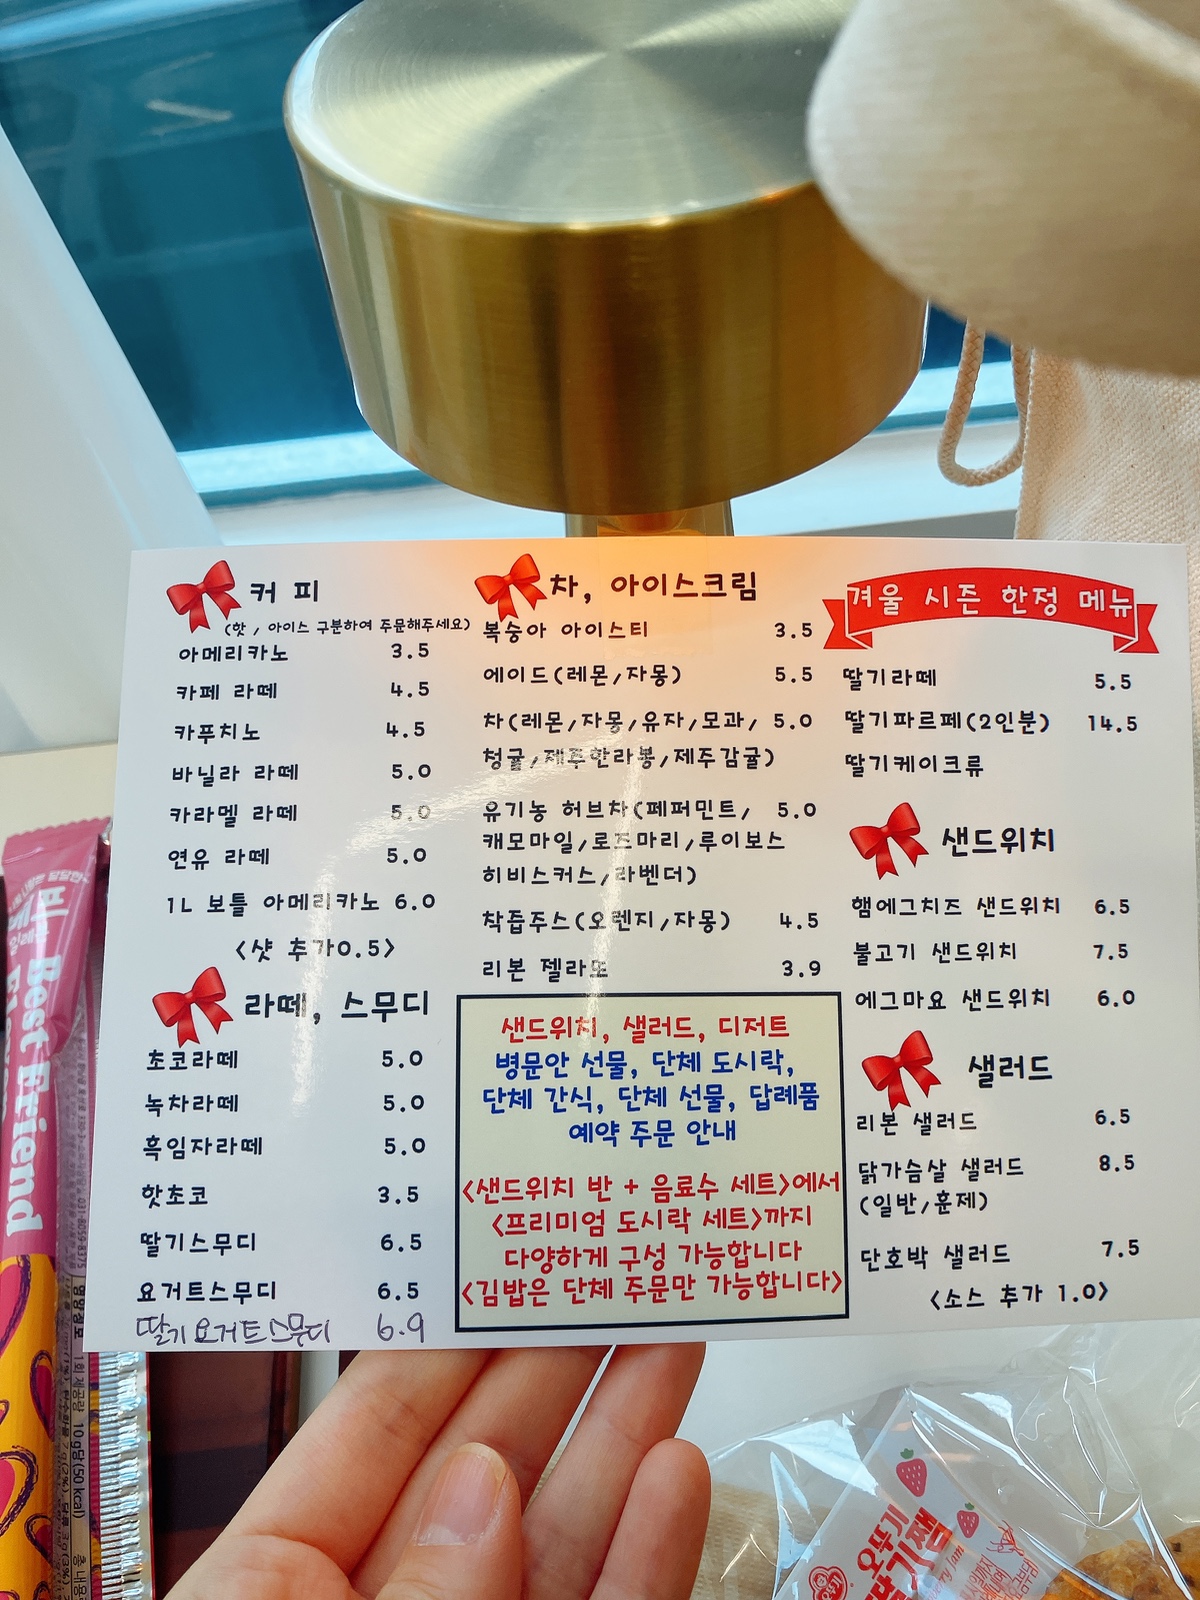 커 피
(핫 / 아이스 구분하여 주문해주세요)
아메리카노 3.5
카페 라떼 4.5
카푸치노 4.5
바닐라 라떼 5.0
카라멜 라떼 5.0
연유 라떼 5.0
1L 보틀 아메리카노 6.0
<샷 추가0.5>
라떼, 스무디
초코라떼 5.0
녹차라떼 5.0
흑임자라떼 5.0
핫초코 3.5
딸기스무디 6.5
요거트스무디 6.5
딸기요거트스무디 6.9
차, 아이스크림
복숭아 아이스티 3.5
에이드(레몬/자몽) 5.5
차(레몬/자몽/유자/모과/ 5.0
청귤/제주한라봉/제주감귤)
유기농 허브차(페퍼민트/ 5.0
캐모마일/로즈마리/루이보스
히비스커스/라벤더)
착즙주스(오렌지/자몽) 4.5
리본 젤라또 3.9
샌드위치, 샐러드, 디저트
병문안 선물, 단체 도시락,
단체 간식, 단체 선물, 답례품
예약 주문 안내
<샌드위치 반 + 음료수 세트>에서
<프리미엄 도시락 세트>까지
다양하게 구성 가능합니다
<김밥은 단체 주문만 가능합니다>
겨울 시즌 한정 메뉴
딸기라떼 5.5
딸기파르페(2인분) 14.5
딸기케이크류
샌드위치
햄에그치즈 샌드위치 6.5
불고기 샌드위치 7.5
에그마요 샌드위치 6.0
샐러드
리본 샐러드 6.5
닭가슴살 샐러드 8.5
(일반/훈제)
단호박 샐러드 7.5
<소스 추가 1.0>
Best Friend
영양정보 1회 제공량 10g당(50 kcal)
031-8059-8375
오뚜기
딸기쨈